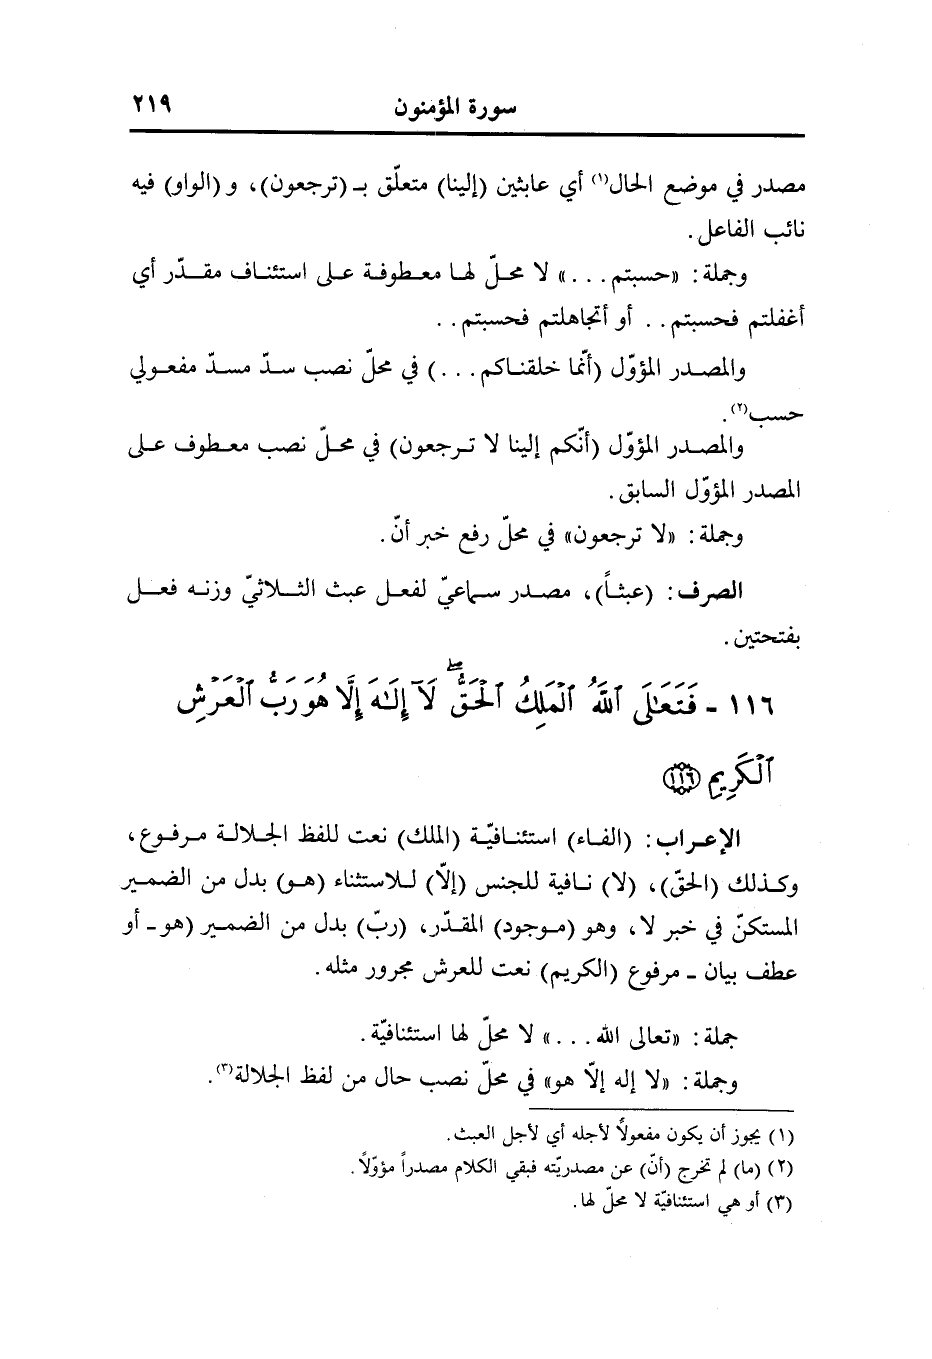 سورة المؤمنون ٢١٩
مصدر في موضع الحال(١) أي عابثين (إلينا) متعلّق بـ (ترجعون)، و (الواو) فيه
نائب الفاعل.
وجملة: «حسبتم...» لا محلّ لها معطوفة على استئناف مقدّر أي
أغفلتم فحسبتم.. أو أتجاهلتم فحسبتم..
والمصدر المؤوّل (أنّما خلقناكم...) في محلّ نصب سدّ مسدّ مفعولي
حسب(٢).
والمصدر المؤوّل (أنّكم إلينا لا ترجعون) في محلّ نصب معطوف على
المصدر المؤوّل السابق.
وجملة: «لا ترجعون» في محلّ رفع خبر أنّ.
الصرف: (عبثاً)، مصدر سماعيّ لفعل عبث الثلاثيّ وزنه فعل
بفتحتين.
١١٦ - فَتَعَٰلَى ٱللَّهُ ٱلْمَلِكُ ٱلْحَقُّ ۖ لَآ إِلَٰهَ إِلَّا هُوَ رَبُّ ٱلْعَرْشِ
ٱلْكَرِيمِ ﴿١١٦﴾
الإعراب: (الفاء) استئنافيّة (الملك) نعت للفظ الجلالة مرفوع،
وكذلك (الحقّ)، (لا) نافية للجنس (إلّا) للاستثناء (هو) بدل من الضمير
المستكنّ في خبر لا، وهو (موجود) المقدّر، (ربّ) بدل من الضمير (هو - أو
عطف بيان - مرفوع (الكريم) نعت للعرش مجرور مثله.
جملة: «تعالى الله...» لا محلّ لها استئنافيّة.
وجملة: «لا إله إلّا هو» في محلّ نصب حال من لفظ الجلالة(٣).
(١) يجوز أن يكون مفعولاً لأجله أي لأجل العبث.
(٢) (ما) لم تخرج (أنّ) عن مصدريّته فبقي الكلام مصدراً مؤوّلاً.
(٣) أو هي استئنافيّة لا محلّ لها.